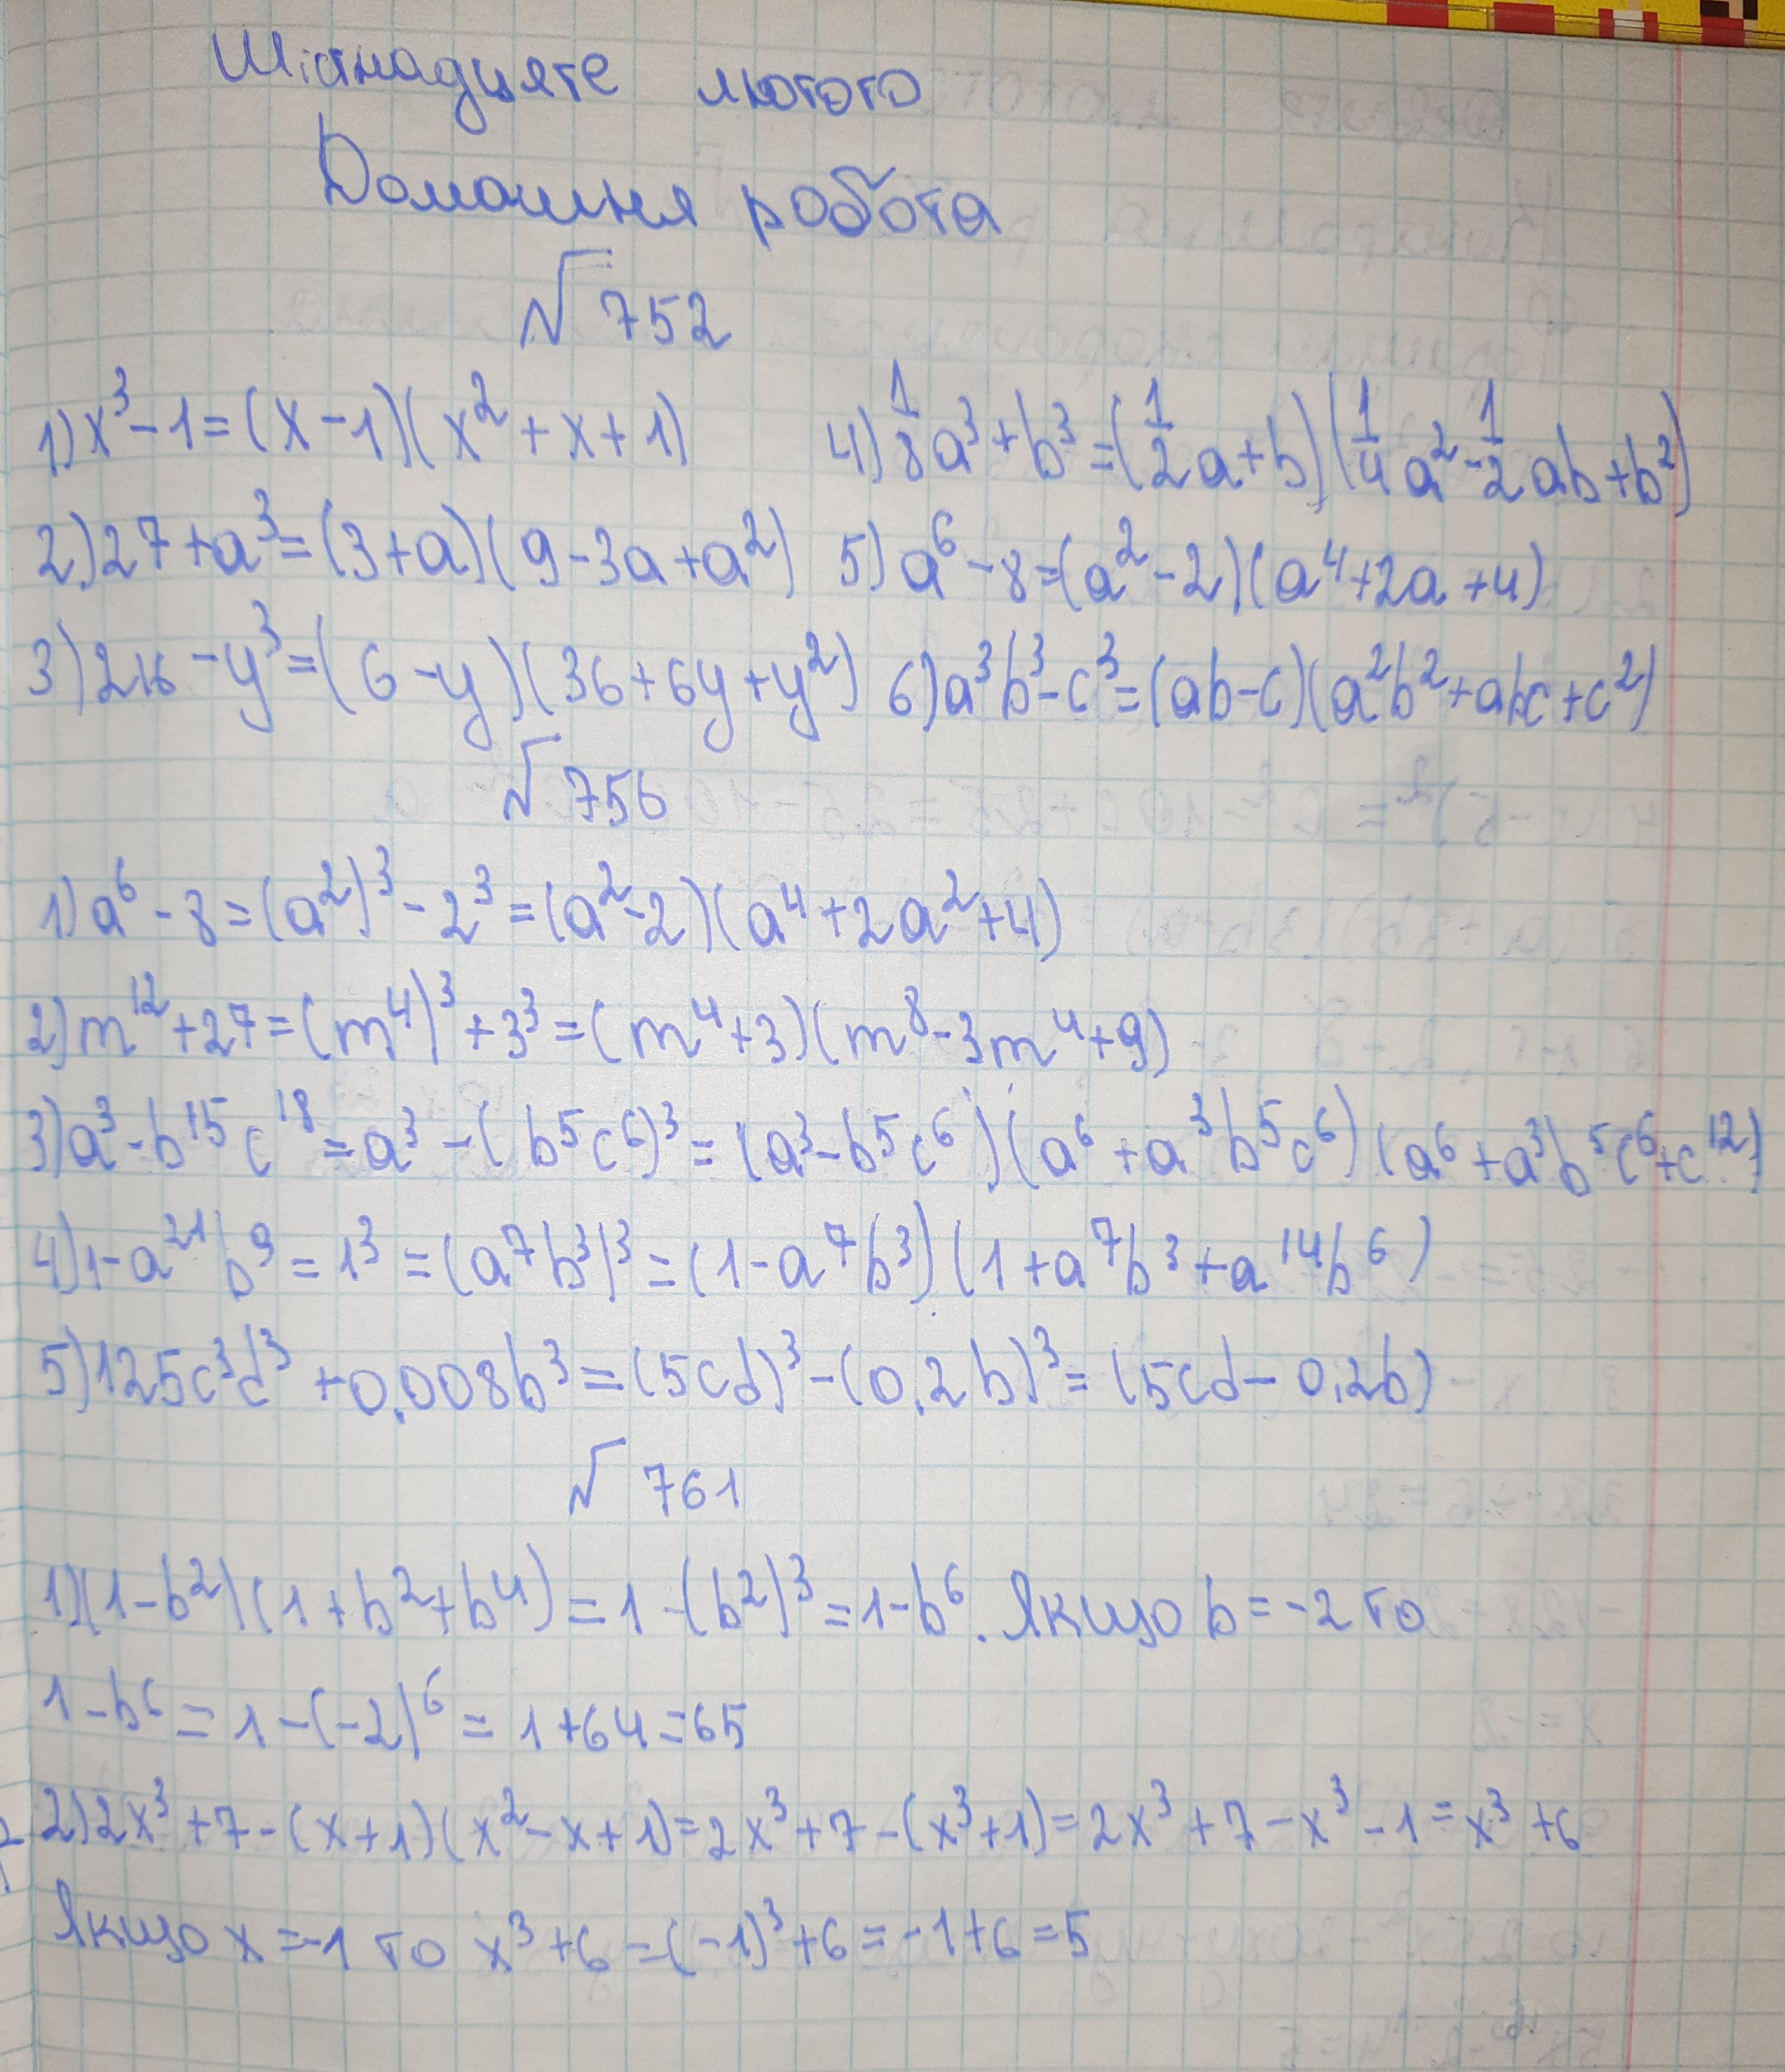 Шістнадцяте лютого
Домашня робота
№ 752
1) x³ - 1 = (x - 1)(x² + x + 1)
4) 1/8 a³ + b³ = (1/2 a + b)(1/4 a² - 1/2 ab + b²)
2) 27 + a³ = (3 + a)(9 - 3a + a²)
5) a⁶ - 8 = (a² - 2)(a⁴ + 2a + 4)
3) 216 - y³ = (6 - y)(36 + 6y + y²)
6) a³b³ - c³ = (ab - c)(a²b² + abc + c²)
№ 756
1) a⁶ - 8 = (a²)³ - 2³ = (a² - 2)(a⁴ + 2a² + 4)
2) m¹² + 27 = (m⁴)³ + 3³ = (m⁴ + 3)(m⁸ - 3m⁴ + 9)
3) a³ - b¹⁵c¹⁸ = a³ - (b⁵c⁶)³ = (a³ - b⁵c⁶)(a⁶ + a³b⁵c⁶)(a⁶ + a³b⁵c⁶ + c¹²)
4) 1 - a²¹b⁹ = 1³ = (a⁷b³)³ = (1 - a⁷b³)(1 + a⁷b³ + a¹⁴b⁶)
5) 125c³d³ + 0,008b³ = (5cd)³ - (0,2b)³ = (5cd - 0,2b)
№ 761
1) (1 - b²)(1 + b² + b⁴) = 1 - (b²)³ = 1 - b⁶. Якщо b = -2 то
1 - b⁶ = 1 - (-2)⁶ = 1 + 64 = 65
2) 2x³ + 7 - (x + 1)(x² - x + 1) = 2x³ + 7 - (x³ + 1) = 2x³ + 7 - x³ - 1 = x³ + 6
Якщо x = -1 то x³ + 6 = (-1)³ + 6 = -1 + 6 = 5